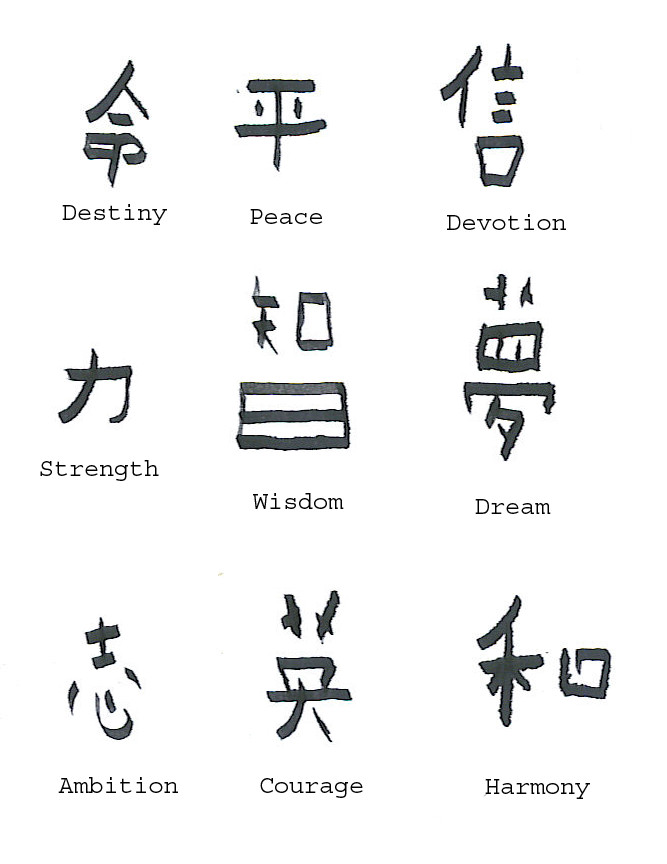 命 平 信
Destiny Peace Devotion
力 智 夢
Strength Wisdom Dream
志 英 和
Ambition Courage Harmony